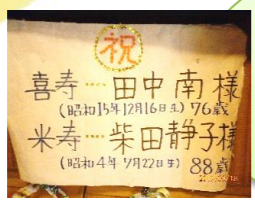 祝
喜寿…田中南様
(昭和15年12月16日生)76歳
米寿…柴田静子様
(昭和4年7月22日生)88歳